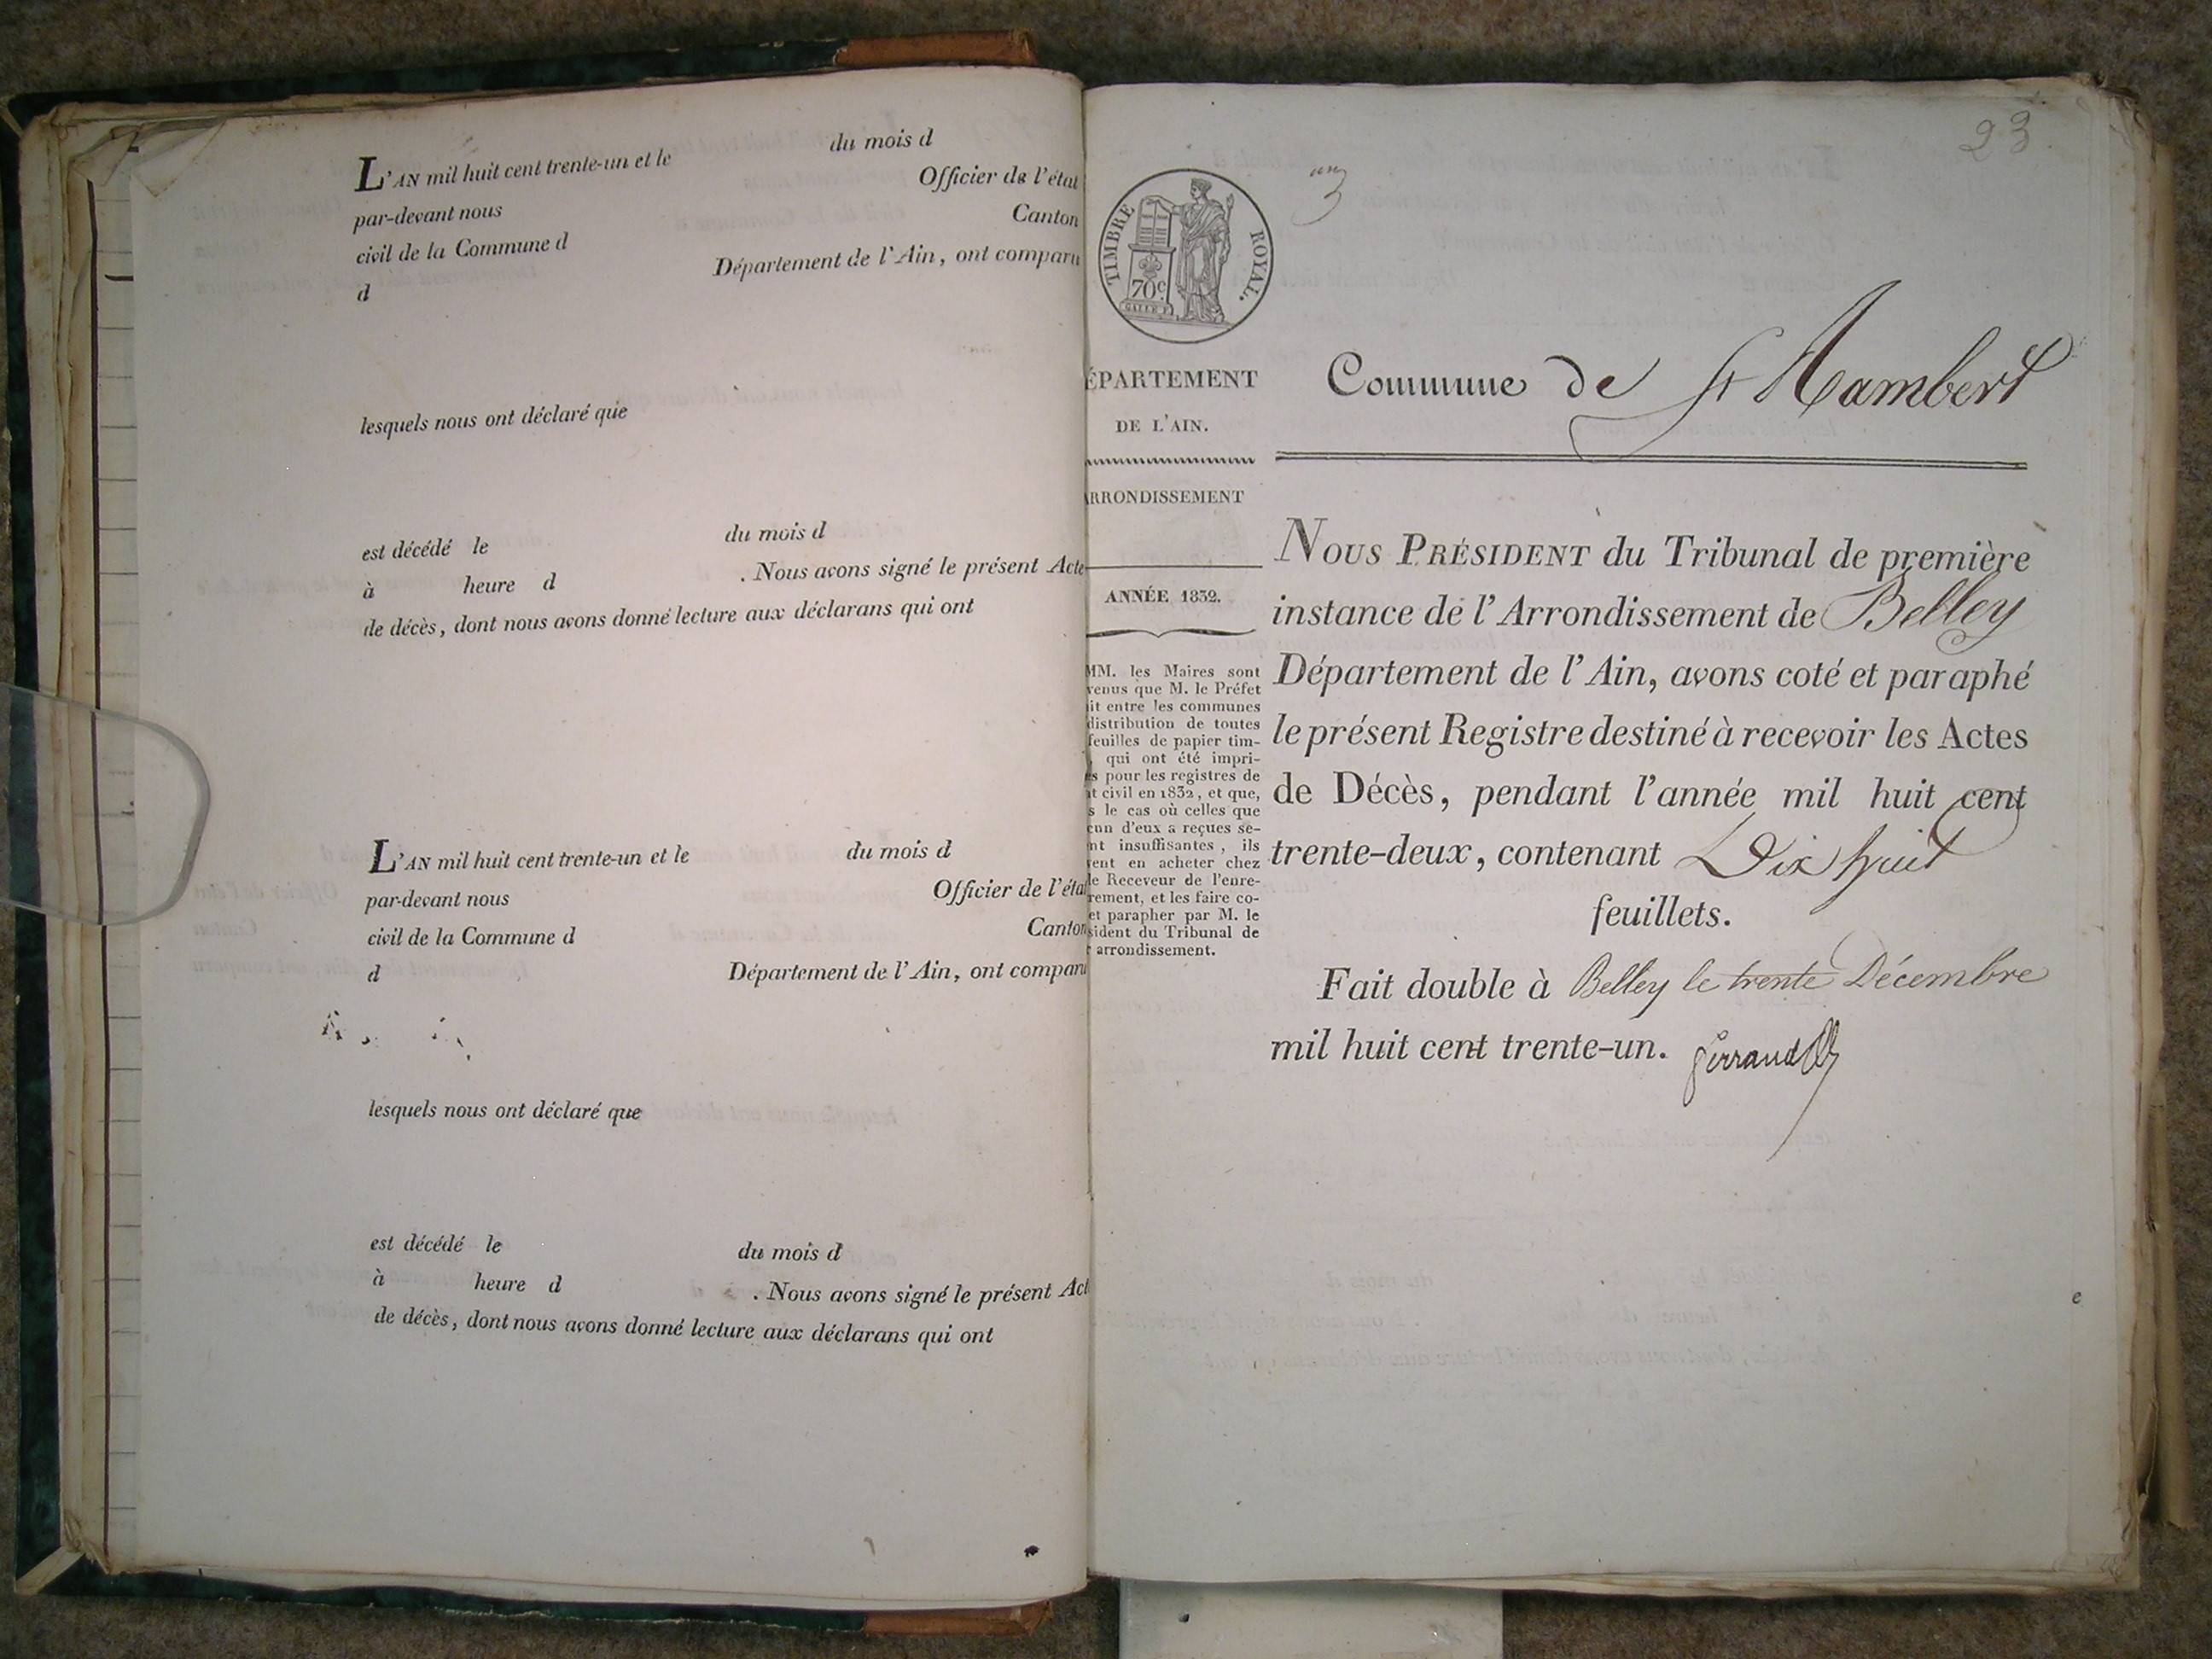 L'AN mil huit cent trente-un et le du mois d
par-devant nous Officier de l'état
civil de la Commune d Canton
d Département de l'Ain, ont comparu
lesquels nous ont déclaré que
est décédé le du mois d
à heure d . Nous avons signé le présent Acte
de décès, dont nous avons donné lecture aux déclarans qui ont
L'AN mil huit cent trente-un et le du mois d
par-devant nous Officier de l'éta
civil de la Commune d Canton
d Département de l'Ain, ont comparu
lesquels nous ont déclaré que
est décédé le du mois d
à heure d . Nous avons signé le présent Act
de décès, dont nous avons donné lecture aux déclarans qui ont
23
un
TIMBRE ROYAL.
70c
ÉPARTEMENT
DE L'AIN.
RRONDISSEMENT
ANNÉE 1832.
MM. les Maires sont
venus que M. le Préfet
it entre les communes
distribution de toutes
feuilles de papier tim-
qui ont été impri-
s pour les registres de
t civil en 1832, et que,
s le cas où celles que
cun d'eux a reçues se-
nt insuffisantes, ils
ent en acheter chez
le Receveur de l'enre-
rement, et les faire co-
et parapher par M. le
sident du Tribunal de
r arrondissement.
Commune de St Rambert
NOUS PRÉSIDENT du Tribunal de première
instance de l'Arrondissement de Belley
Département de l'Ain, avons coté et paraphé
le présent Registre destiné à recevoir les Actes
de Décès, pendant l'année mil huit cent
trente-deux, contenant Dix huit
feuillets.
Fait double à Belley le trente Décembre
mil huit cent trente-un.
e